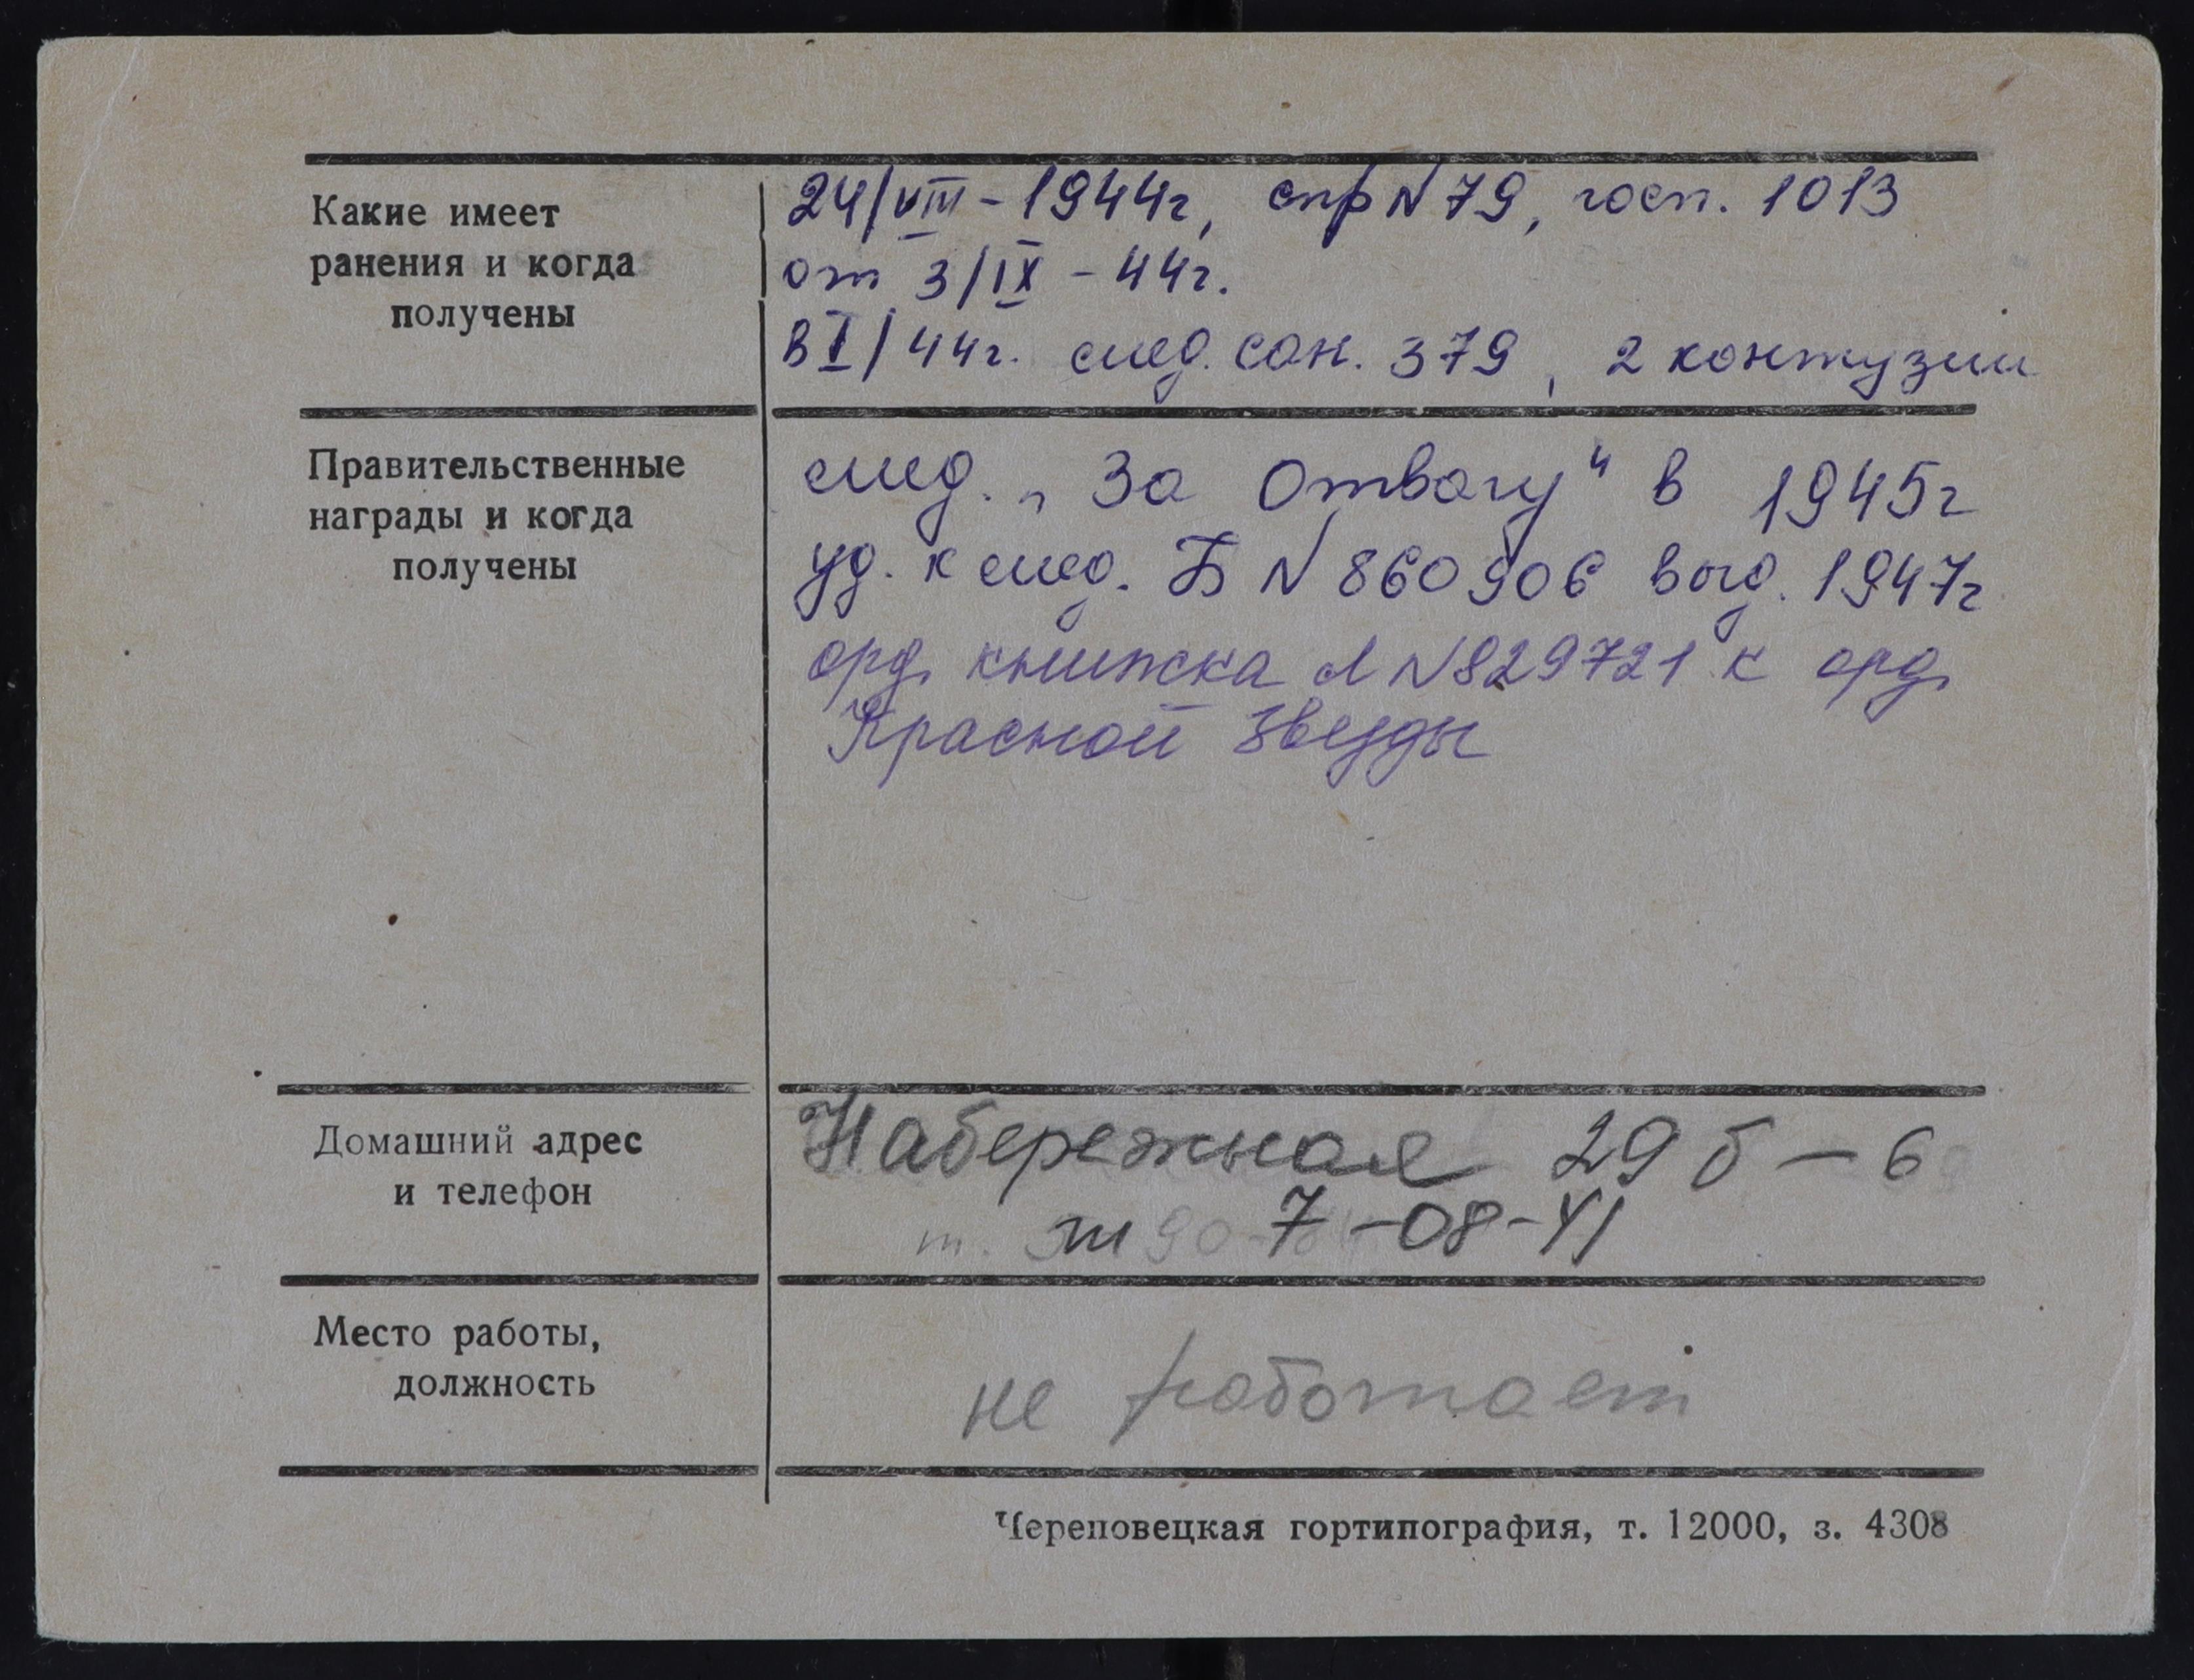 Какие имеет
ранения и когда
получены
24/VIII - 1944г, спр N 79, госп. 1013
от 3/IX - 44г.
в I/44г. мед. сан. 379, 2 контузии
Правительственные
награды и когда
получены
мед. „За Отвагу" в 1945г
уд. к мед. Б N 860906 выд. 1947г
орд. книжка Л N 829721 к орд.
Красной Звезды
Домашний адрес
и телефон
Набережная 29 б - 6
т. 7-08-41
Место работы,
должность
не работает
Череповецкая гортипография, т. 12000, з. 4308